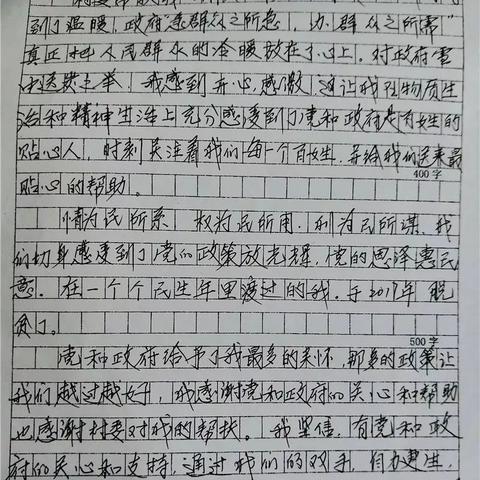 到了温暖，政府急群众之所急，办群众之所需"
真正把人民群众的冷暖放在了心上，对政府雪
中送炭之举，我感到开心，感激，这让我在物质生
活和精神生活上充分感受到了党和政府是百姓的
贴心人，时刻关注着我们每一个百姓，并给我们送来最
400字
贴心的帮助。
情为民所系，权为民所用，利为民所谋，我
们切身感受到了党的政策放光辉，党的恩泽惠民
意。在一个个民生年里渡过的我，于2017年脱
贫了。
500字
党和政府给予了我最多的关怀，那多的政策让
我们越过越好，我感谢党和政府的关心和帮助
也感谢村委对我的帮扶。我坚信，有党和政
府的关心和支持，通过我们的双手，自力更生，